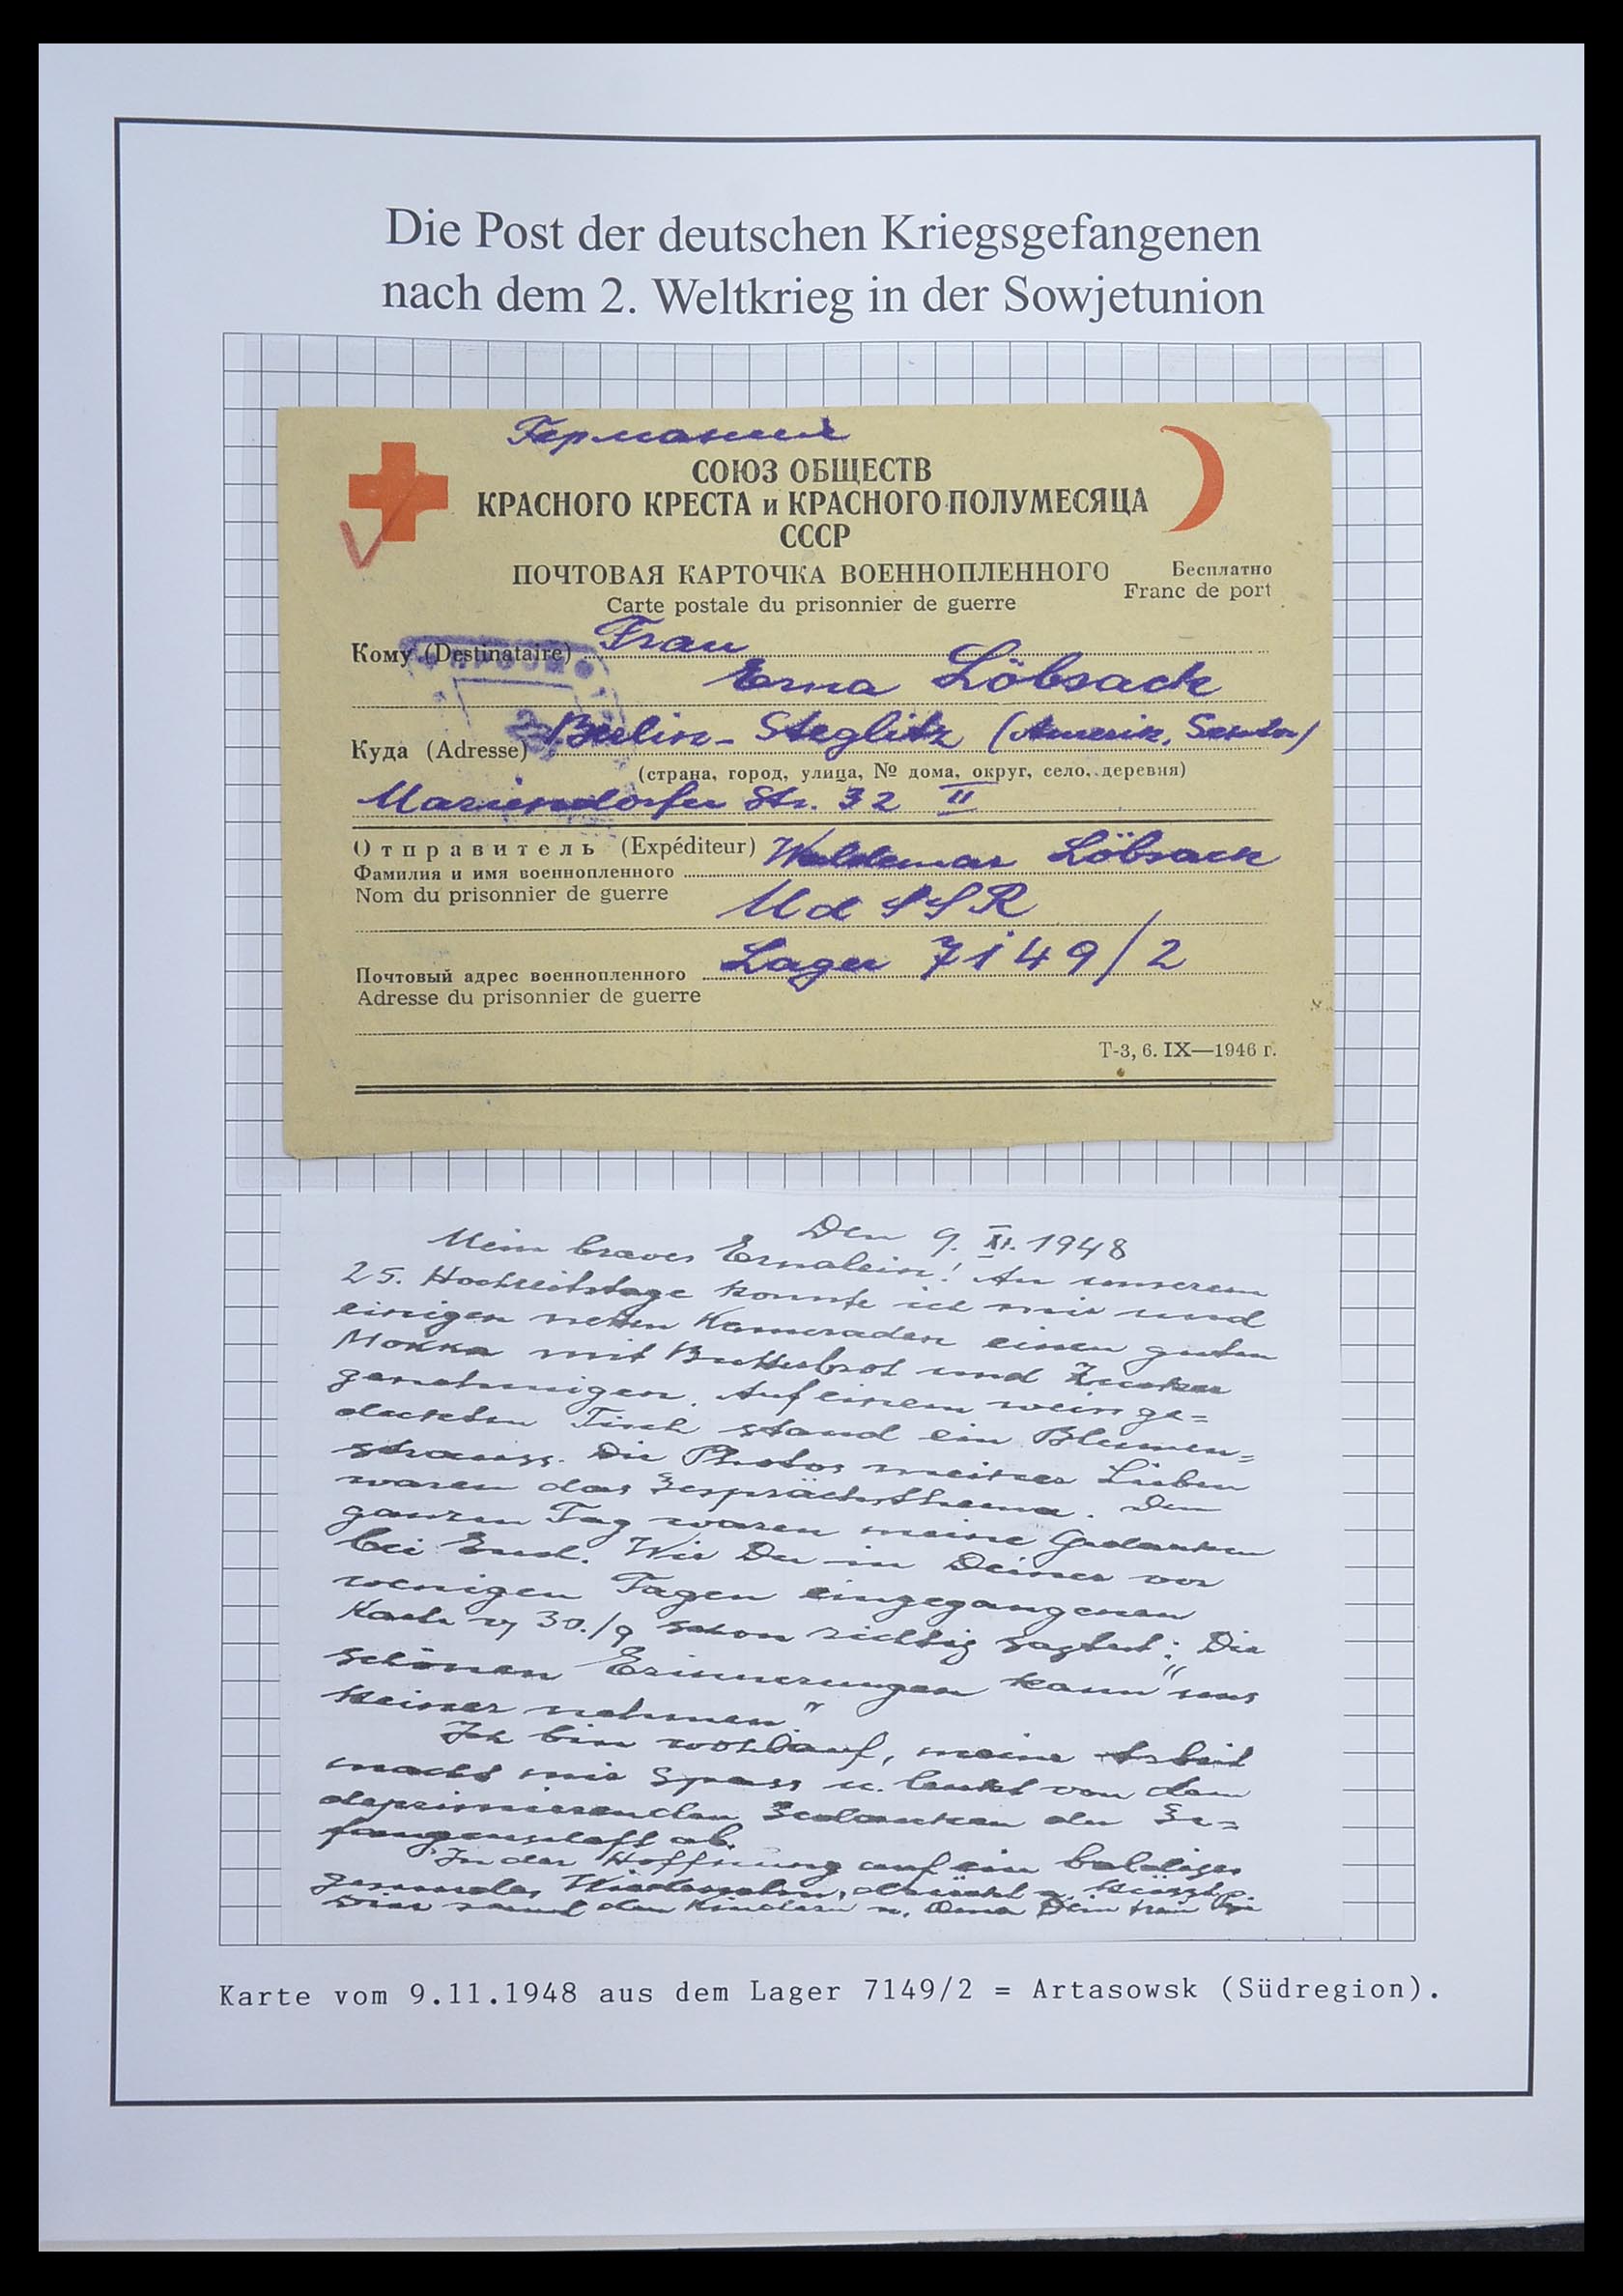 Die Post der deutschen Kriegsgefangenen
nach dem 2. Weltkrieg in der Sowjetunion
Германия
СОЮЗ ОБЩЕСТВ
КРАСНОГО КРЕСТА и КРАСНОГО ПОЛУМЕСЯЦА
СССР
ПОЧТОВАЯ КАРТОЧКА ВОЕННОПЛЕННОГО
Бесплатно
Carte postale du prisonnier de guerre
Franc de port
Кому (Destinataire) Frau
Erna Löbsack
Куда (Adresse) Berlin-Steglitz (Amerik. Sektor)
(страна, город, улица, № дома, округ, село, деревня)
Mariendorfer Str. 32 II
Отправитель (Expéditeur) Waldemar Löbsack
Фамилия и имя военнопленного
Nom du prisonnier de guerre
UdSSR
Почтовый адрес военнопленного Lager 7149/2
Adresse du prisonnier de guerre
Т-3, 6. IX—1946 г.
Den 9. XI. 1948
Mein braves Ernalein! An unserem
25. Hochzeitstage konnte ich mir und
einigen netten Kameraden einen guten
Mokka mit Butterbrot und Zucker
genehmigen. Auf einem weiss ge=
deckten Tisch stand ein Blumen=
strauss. Die Photos meiner Lieben
waren das Gesprächsthema. Den
ganzen Tag waren meine Gedanken
bei Euch. Wie Du in Deiner vor
wenigen Tagen eingegangenen
Karte v. 30./9 schon richtig sagtest: „Die
schönen Erinnerungen kann uns
keiner nehmen."
Ich bin wohlauf, meine Arbeit
macht mir Spass u. lenkt von den
deprimierenden Gedanken der Ge=
fangenschaft ab.
In der Hoffnung auf ein baldiges
gesundes Wiedersehn, drückt u. küsst
Dich samt den Kindern u. Oma Dein
Karte vom 9.11.1948 aus dem Lager 7149/2 = Artasowsk (Südregion).